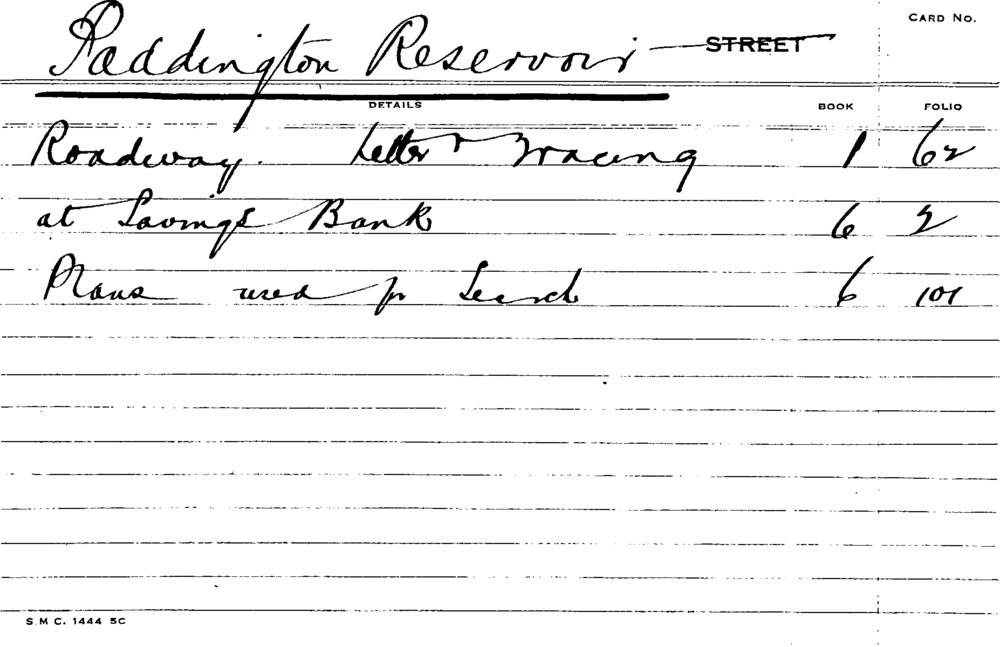 CARD NO.
Paddington Reservoir STREET
DETAILS BOOK FOLIO
Roadway. Letter & Tracing 1 62
at Savings Bank 6 2
Plans used for Search 6 101
S.M.C. 1444 5C